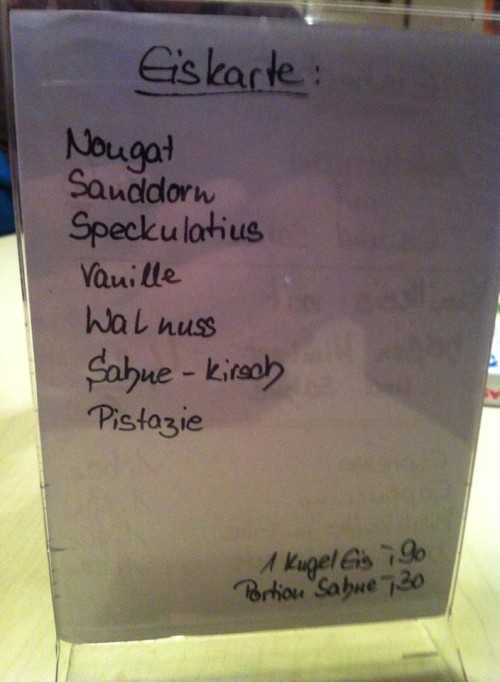 Eiskarte:
Nougat
Sanddorn
Speckulatius
Vanille
Walnuss
Sahne - Kirsch
Pistazie
1 Kugel Eis -,90
Portion Sahne -,30